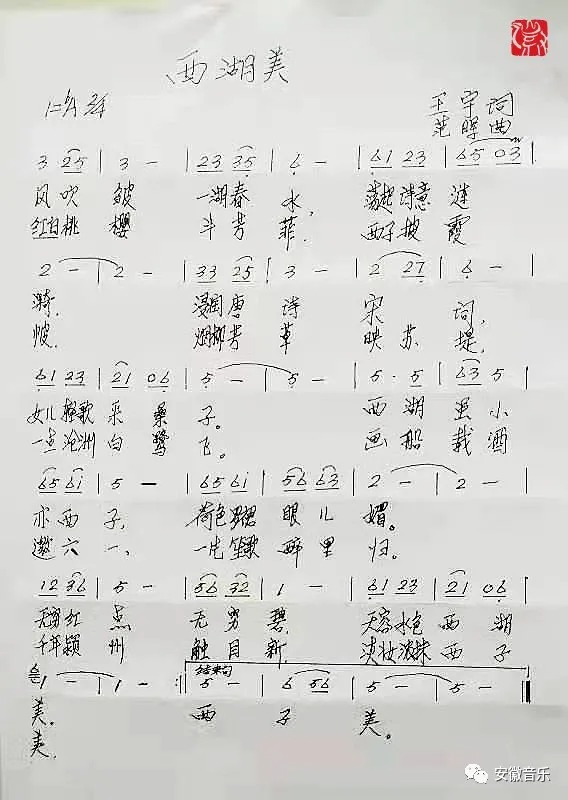 西湖美
1=A 2/4
王宇词
范晖曲
3 25 | 3 - | 23 35 | 6 - | 61 23 | 65 03 |
风吹皱 一湖春水, 荡起诗意涟
红白桃樱 斗芳菲. 西子披霞
2 - | 2 - | 33 25 | 3 - | 2 27 | 6 - |
漪. 浸润唐诗宋词,
帔. 烟柳芳草映苏堤,
61 23 | 21 06 | 5 - | 5 - | 5 · 5 | 63 5 |
女儿轻歌采桑子。 西湖虽小
一点沧洲白鹭飞。 画船载酒
65 6i | 5 - | 65 6i | 56 63 | 2 - | 2 - |
亦西子, 荷色罗裙眼儿媚。
邀六一、 一片笙歌醉里归。
12 36 | 5 - | 56 32 | 1 - | 61 23 | 21 06 |
无穷红点 无穷碧, 天容水色西湖
千年颍州 触目新, 淡妆浓抹西子
1 - | 1 - :| 结束句 5 - | 6 56 | 5 - | 5 - ‖
美。 西子美。
美。
安徽音乐